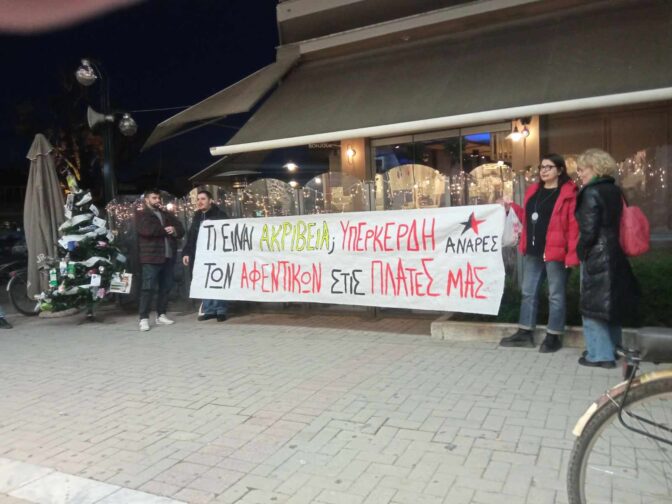 ΤΙ ΕΙΝΑΙ ΑΚΡΙΒΕΙΑ; ΥΠΕΡΚΕΡΔΗ
ΤΩΝ ΑΦΕΝΤΙΚΩΝ ΣΤΙΣ ΠΛΑΤΕΣ ΜΑΣ
ΑΝΑΡΕΣ